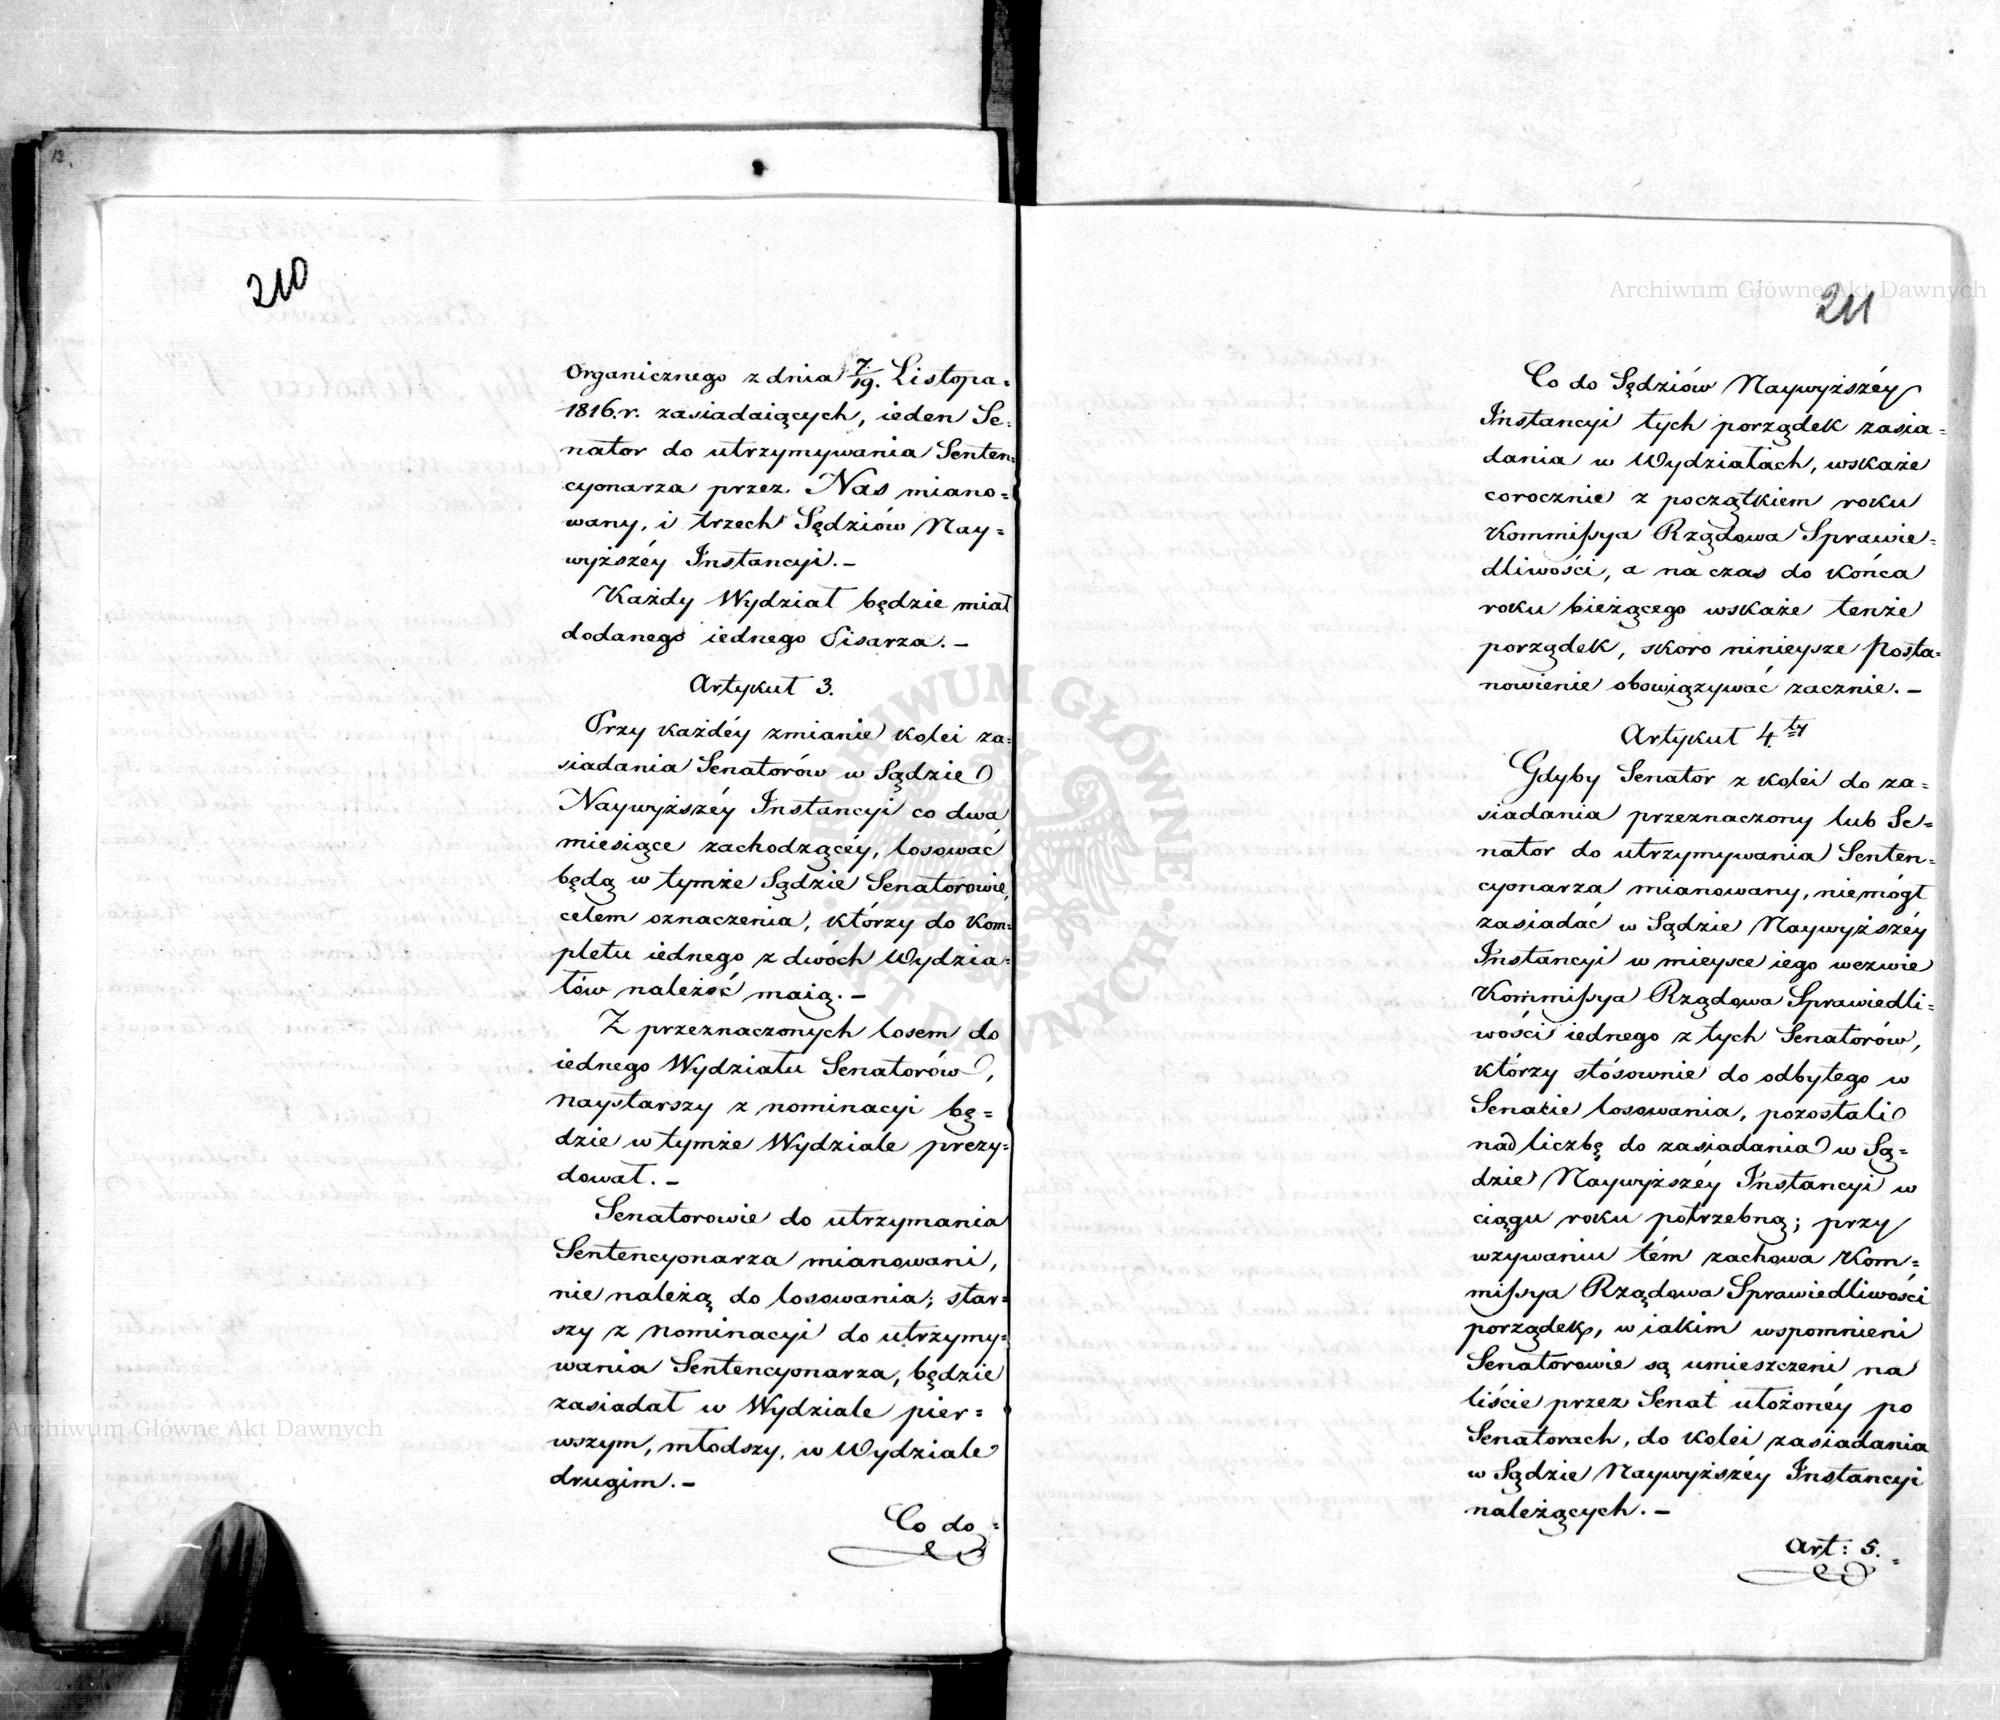 12.
210
Organicznego z dnia 7/19. Listopa=
1816.r. zasiadaiących, ieden Se=
nator do utrzymywania Senten=
cyonarza przez Nas miano=
wany, i trzech Sędziów Nay=
wyższéy Instancyi.-
Każdy Wydział będzie miał
dodanego iednego Pisarza.-
Artykuł 3.
Przy każdéy zmianie kolei za=
siadania Senatorów w Sądzie
Naywyższéy Instancyi co dwa
miesiące zachodzącéy, losować
będą w tymże Sądzie Senatorowie
celem oznaczenia, którzy do Kom=
pletu iednego z dwóch Wydzia=
łów należéć maią.-
Z przeznaczonych losem do
iednego Wydziału Senatorów,
naystarszy z nominacyi bę=
dzie w tymże Wydziale prezy=
dował.-
Senatorowie do utrzymania
Sentencyonarza mianowani,
nie należą do losowania; star=
szy z nominacyi do utrzymy=
wania Sentencyonarza, będzie
zasiadał w Wydziale pier=
wszym, młodszy, w Wydziale
drugim.-
Co do =
211
Co do Sędziów Naywyższéy
Instancyi tych porządek zasia=
dania w Wydziałach, wskaże
corocznie z początkiem roku
Kommissya Rządowa Sprawie=
dliwości, a na czas do końca
roku bieżącego wskaże tenże
porządek, skoro ninieysze Posta=
nowienie obowiązywać zacznie.-
Artykuł 4.ty
Gdyby Senator z kolei do za=
siadania przeznaczony lub Se=
nator do utrzymywania Senten=
cyonarza mianowany, niemógł
zasiadać w Sądzie Naywyższéy
Instancyi w mieysce iego wezwie
Kommissya Rządowa Sprawiedli=
wości iednego z tych Senatorów,
którzy stósownie do odbytego w
Senacie losowania, pozostali
nad liczbę do zasiadania w Są=
dzie Naywyższéy Instancyi w
ciągu roku potrzebną; przy
wzywaniu tém zachowa Kom=
missya Rządowa Sprawiedliwości
porządek, w iakim wspomnieni
Senatorowie są umieszczeni na
liście przez Senat ułożonéy po
Senatorach, do kolei zasiadania
w Sądzie Naywyższéy Instancyi
należących.-
Art: 5. =
Archiwum Główne Akt Dawnych
Archiwum Główne Akt Dawnych
ARCHIWUM GŁÓWNE AKT DAWNYCH